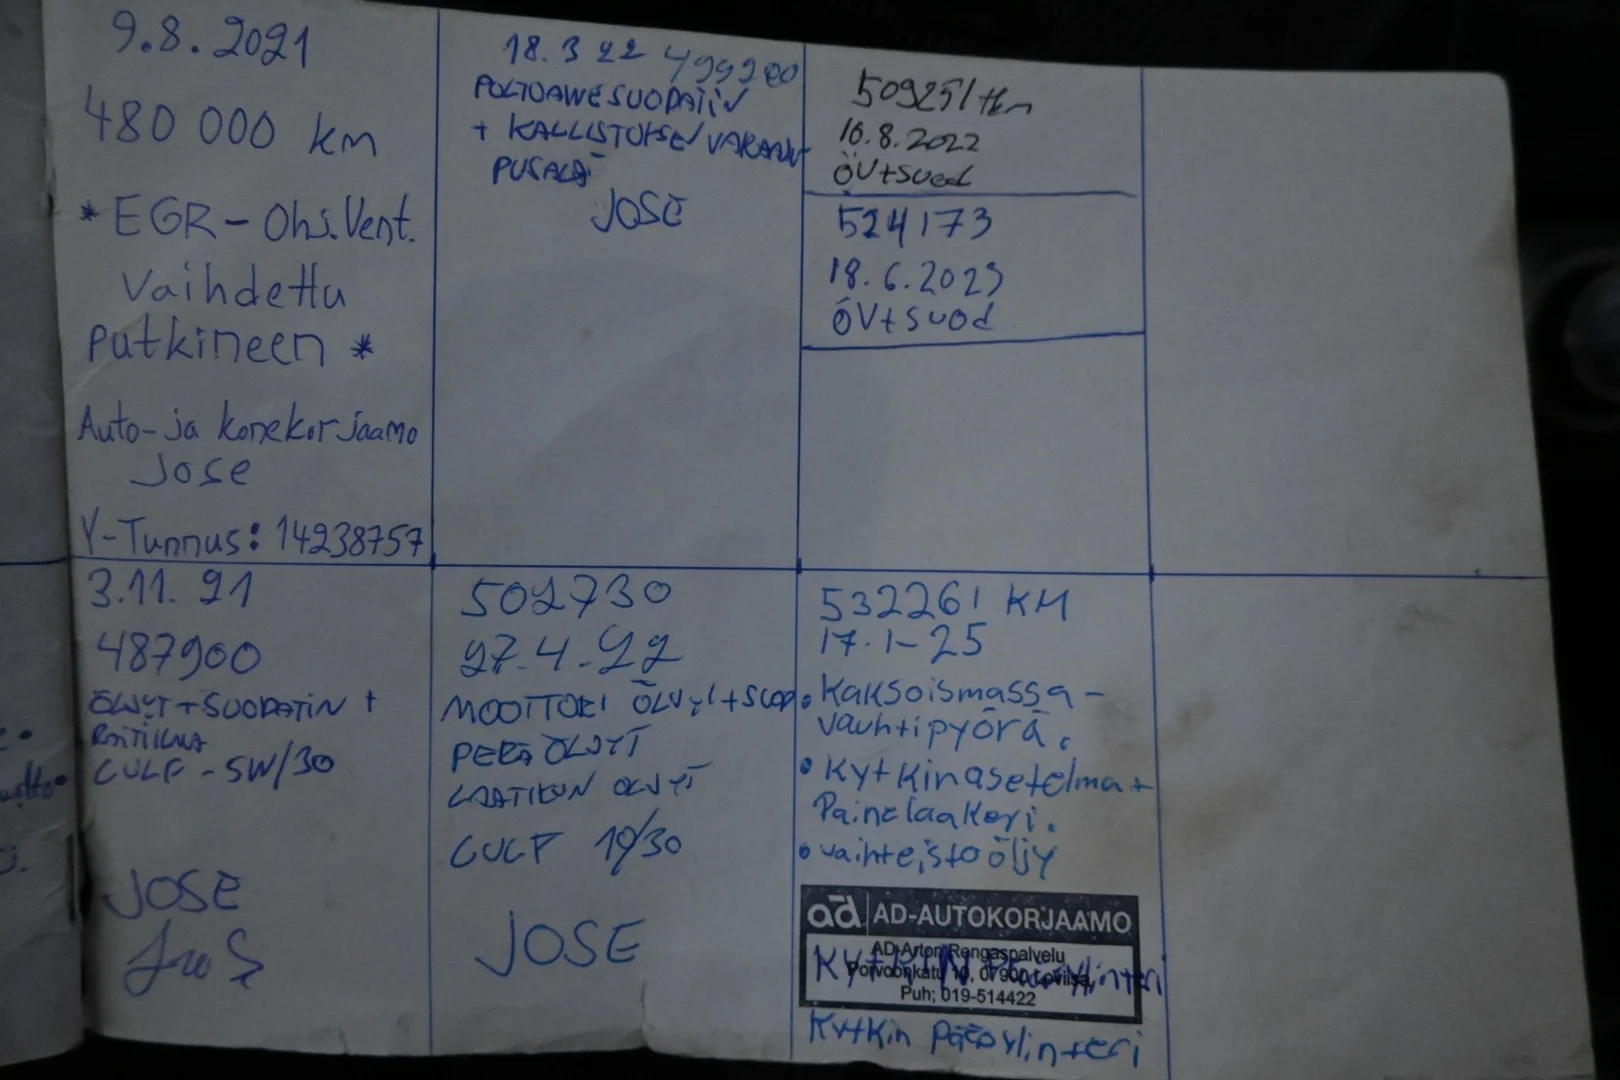 9.8.2021
480 000 km
* EGR-Ohj.Vent.
Vaihdettu
putkineen *
Auto-ja konekorjaamo
Jose
Y-Tunnus: 14238757
3.11.21
487900
ÖLJYT + SUODATIN +
RAITIILMA
GULF - 5W/30
JOSE
18.3 22 499200
POLTOAINESUODATIN
+ KALLISTUKSEN VAKAAJAT
PUSALA
JOSE
502730
27.4.22
MOOTTORI ÖLJYT+SUOD
PERÄ ÖLJYT
LAATIKON ÖLJYT
GULF 10/30
JOSE
509251 tkm
16.8.2022
ÖV+suod
524173
18.6.2023
ÖV+suod
532261 KM
17.1-25
• Kaksoismassa-
vauhtipyörä.
• Kytkinasetelma+
Painelaakeri.
• vaihteistoöljy
ad AD-AUTOKORJAAMO
AD-Arton Rengaspalvelu
Porvoonkatu 10, 07900 Loviisa
Puh; 019-514422
Kytkin Pääsylinteri
Kytkin Pääsylinteri